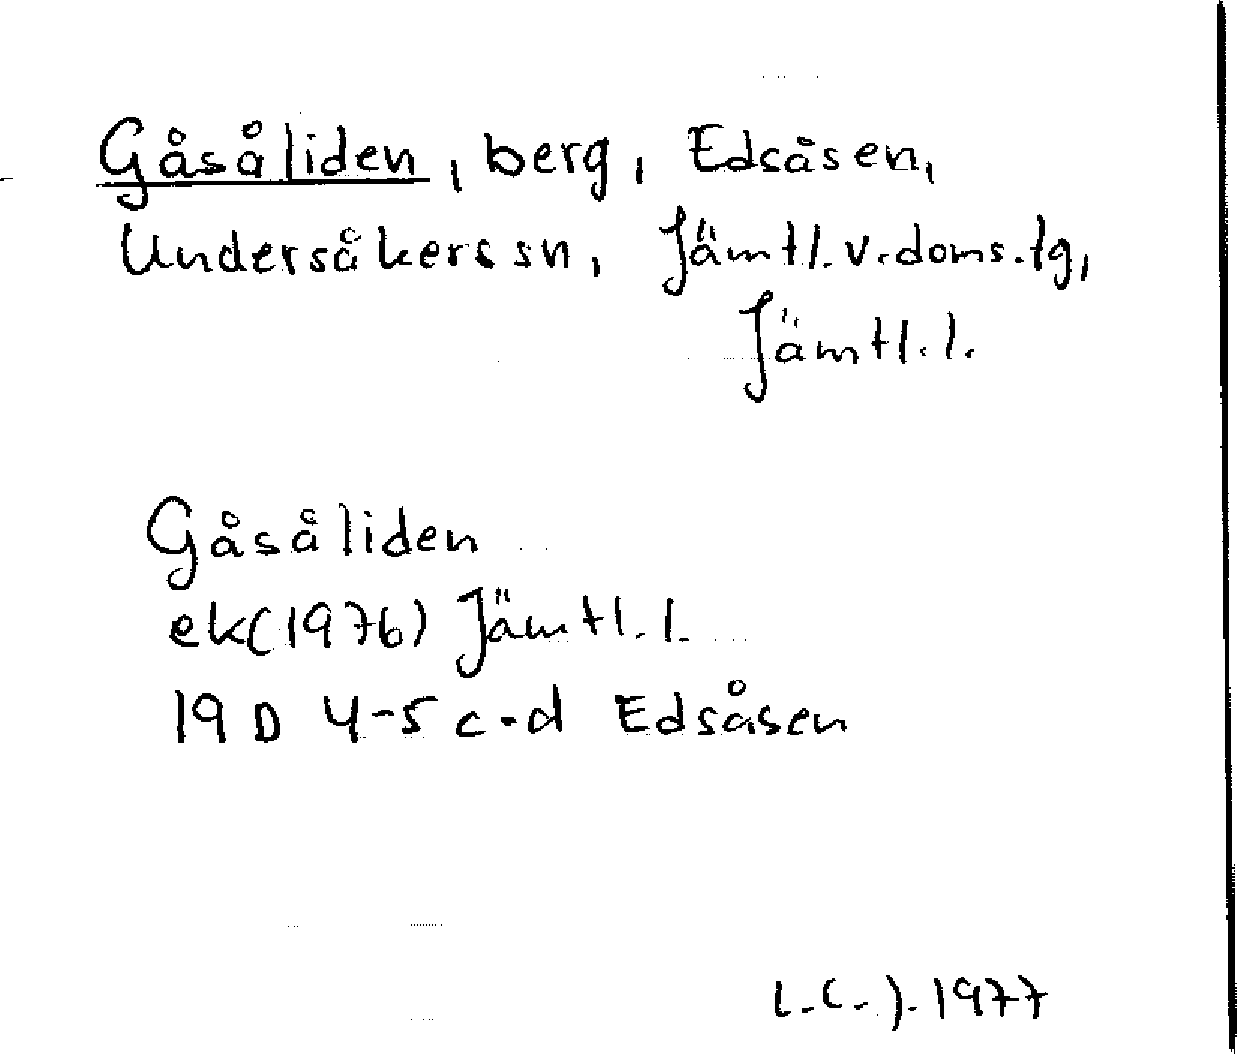 Gåsåliden, berg, Edsåsen,
Undersåkers sn, Jämtl. v. doms. tg,
Jämtl. l.
Gåsåliden
ek (1976) Jämtl. l.
19 D 4-5 c-d Edsåsen
1977